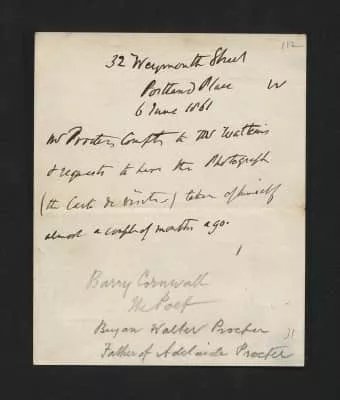 112
32 Weymouth Street
Portland Place W
6 June 1861
Mr Procters Compts to Mr Watkins
& requests to have the Photograph
(the Carte de Visite) taken of himself
almost a couple of months ago.
Barry Cornwall
the Poet
Bryan Walter Procter
Father of Adelaide Procter